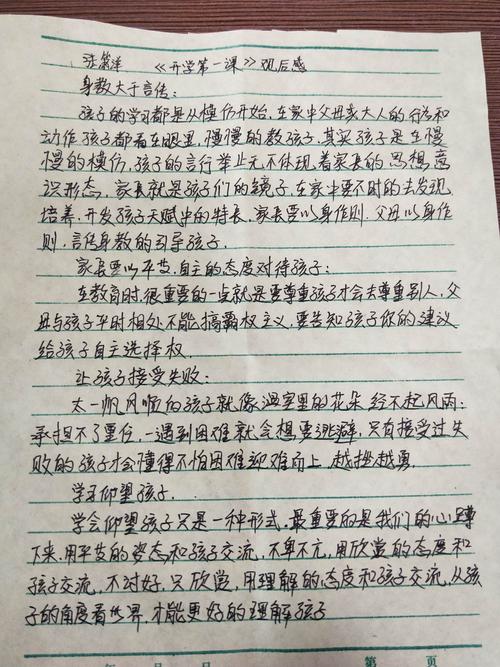 《开学第一课》观后感
身教大于言传:
孩子的学习都是从模仿开始,在家中父母亲大人的行为和
动作,孩子都看在眼里,慢慢的教孩子,其实孩子是在慢
慢的模仿,孩子的言行举止无不体现着家长的思想,意
识形态,家长就是孩子们的镜子,在家中要不时的去发现
培养,开发孩子天赋中的特长,家长要以身作则,父母以身作
则,言传身教的引导孩子.
家长要以平等,自主的态度对待孩子:
在教育时,很重要的一点就是要尊重孩子才会去尊重别人,父
母与孩子平时相处不能搞霸权主义,要告知孩子你的建议
给孩子自主选择权.
让孩子接受失败:
太一帆风顺的孩子就像温室里的花朵,经不起风雨;
承担不了重任,一遇到困难就会想要逃避,只有接受过失
败的孩子才会懂得不怕困难迎难而上,越挫越勇.
学习仰望孩子.
学会仰望孩子只是一种形式,最重要的是我们的心蹲
下来,用平等的姿态和孩子交流,不卑不亢,用欣赏的态度和
孩子交流,不讨好,只欣赏,用理解的态度和孩子交流,从孩
子的角度看世界,才能更好的理解孩子
年 月 日 第 页